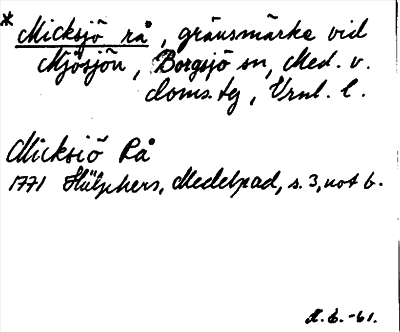 * Micksjö rå, gränsmärke vid
Mjösjön, Borgsjö sn, Med. v.
doms. tg, Vrnl. l.
Micksiö Rå
1771 Hülphers, Medelpad, s. 3, not b.
-61.